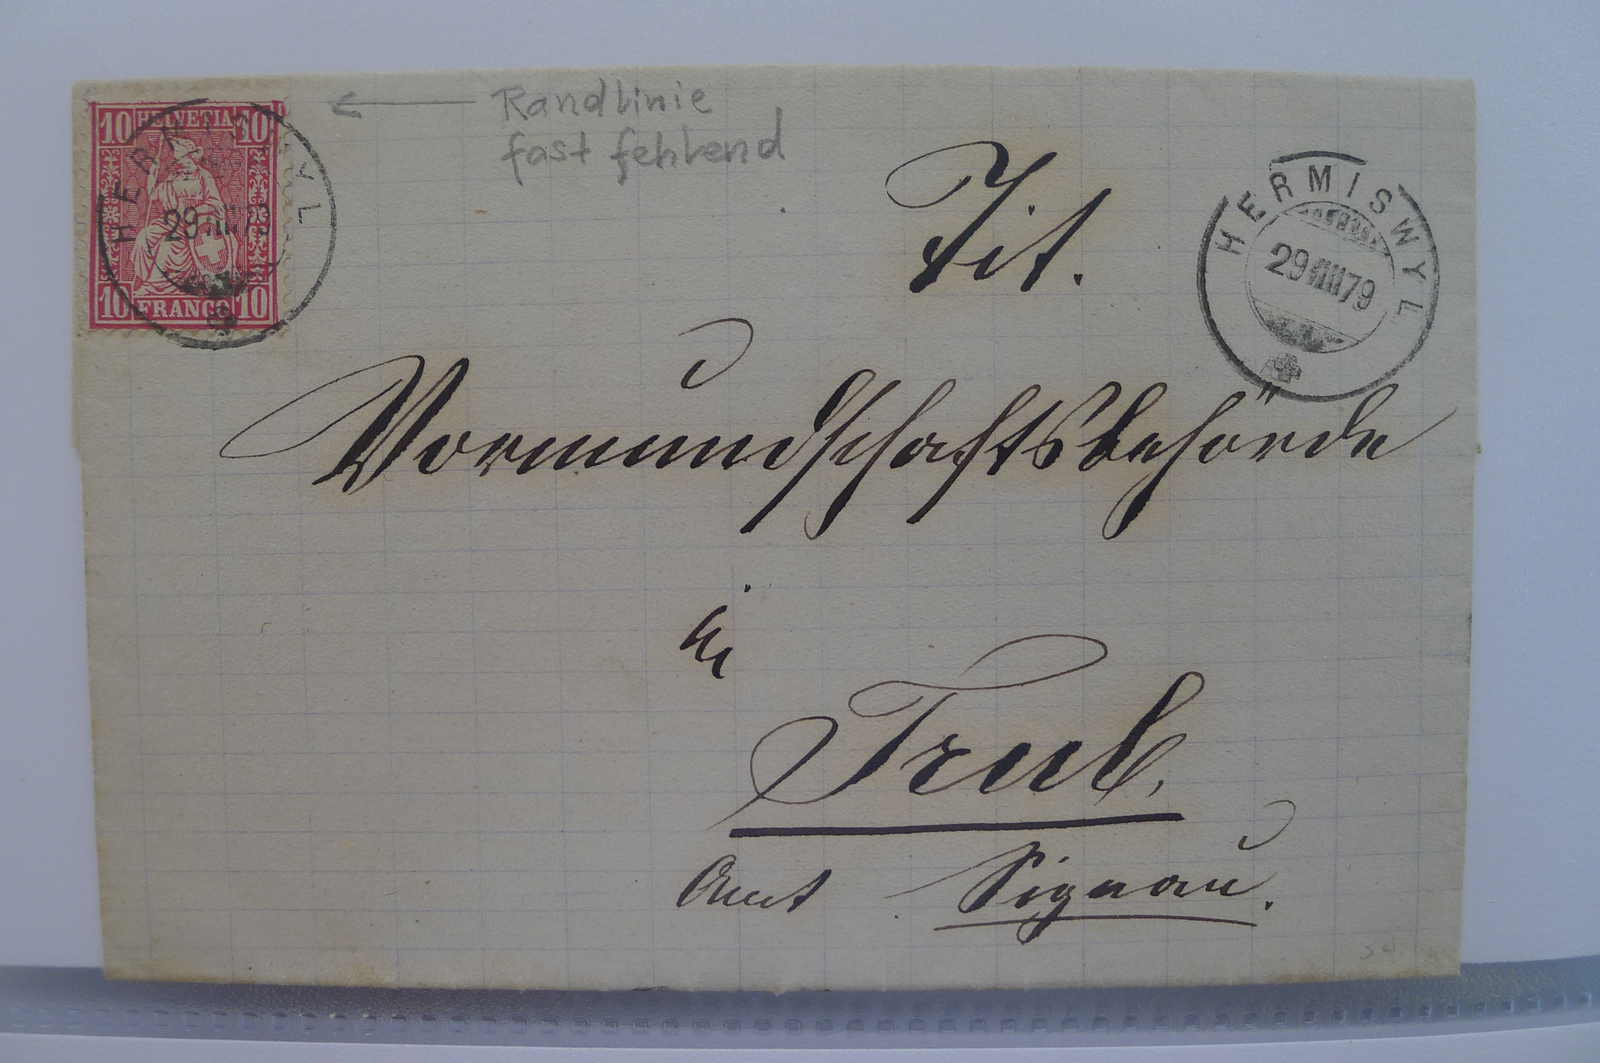 10 HELVETIA 10
10 FRANCO 10
HERMISWYL
29 VIII 79
Randlinie
fast fehlend
HERMISWYL
29 VIII 79
Tit.
Vormundschaftsbehörde
in
Trub.
Amt Signau.